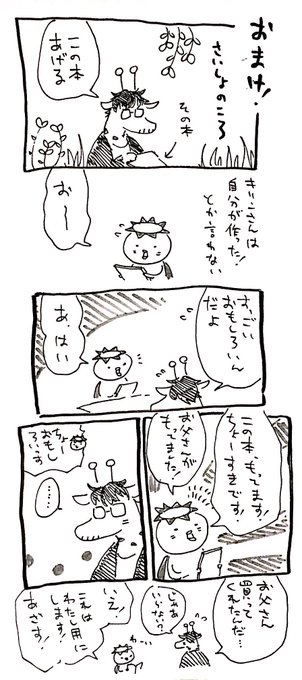 おまけ!
さいしょのころ
この本
あげる
その本
きりんさんは
自分が作った!
とか言わない
おー
すっごい
おもしろいん
だよ
あ、はい
この本、もってます!
ちょーすきです!
お父さんが
もってました!
ちょー
おもし
ろいっす
……
お父さん
買って
くれたんだ…
じゃあ
いらない?
いえ!
これは
わたし用に
します!
あざす!
わーい